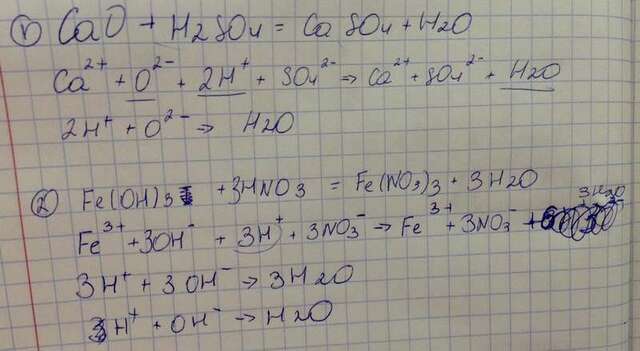 1) CaO + H2SO4 = CaSO4 + H2O
Ca²⁺ + O²⁻ + 2H⁺ + SO4²⁻ → Ca²⁺ + SO4²⁻ + H2O
2H⁺ + O²⁻ → H2O
2) Fe(OH)3 + 3HNO3 = Fe(NO3)3 + 3H2O
Fe³⁺ + 3OH⁻ + 3H⁺ + 3NO3⁻ → Fe³⁺ + 3NO3⁻ + 3H2O
3H⁺ + 3OH⁻ → 3H2O
H⁺ + OH⁻ → H2O